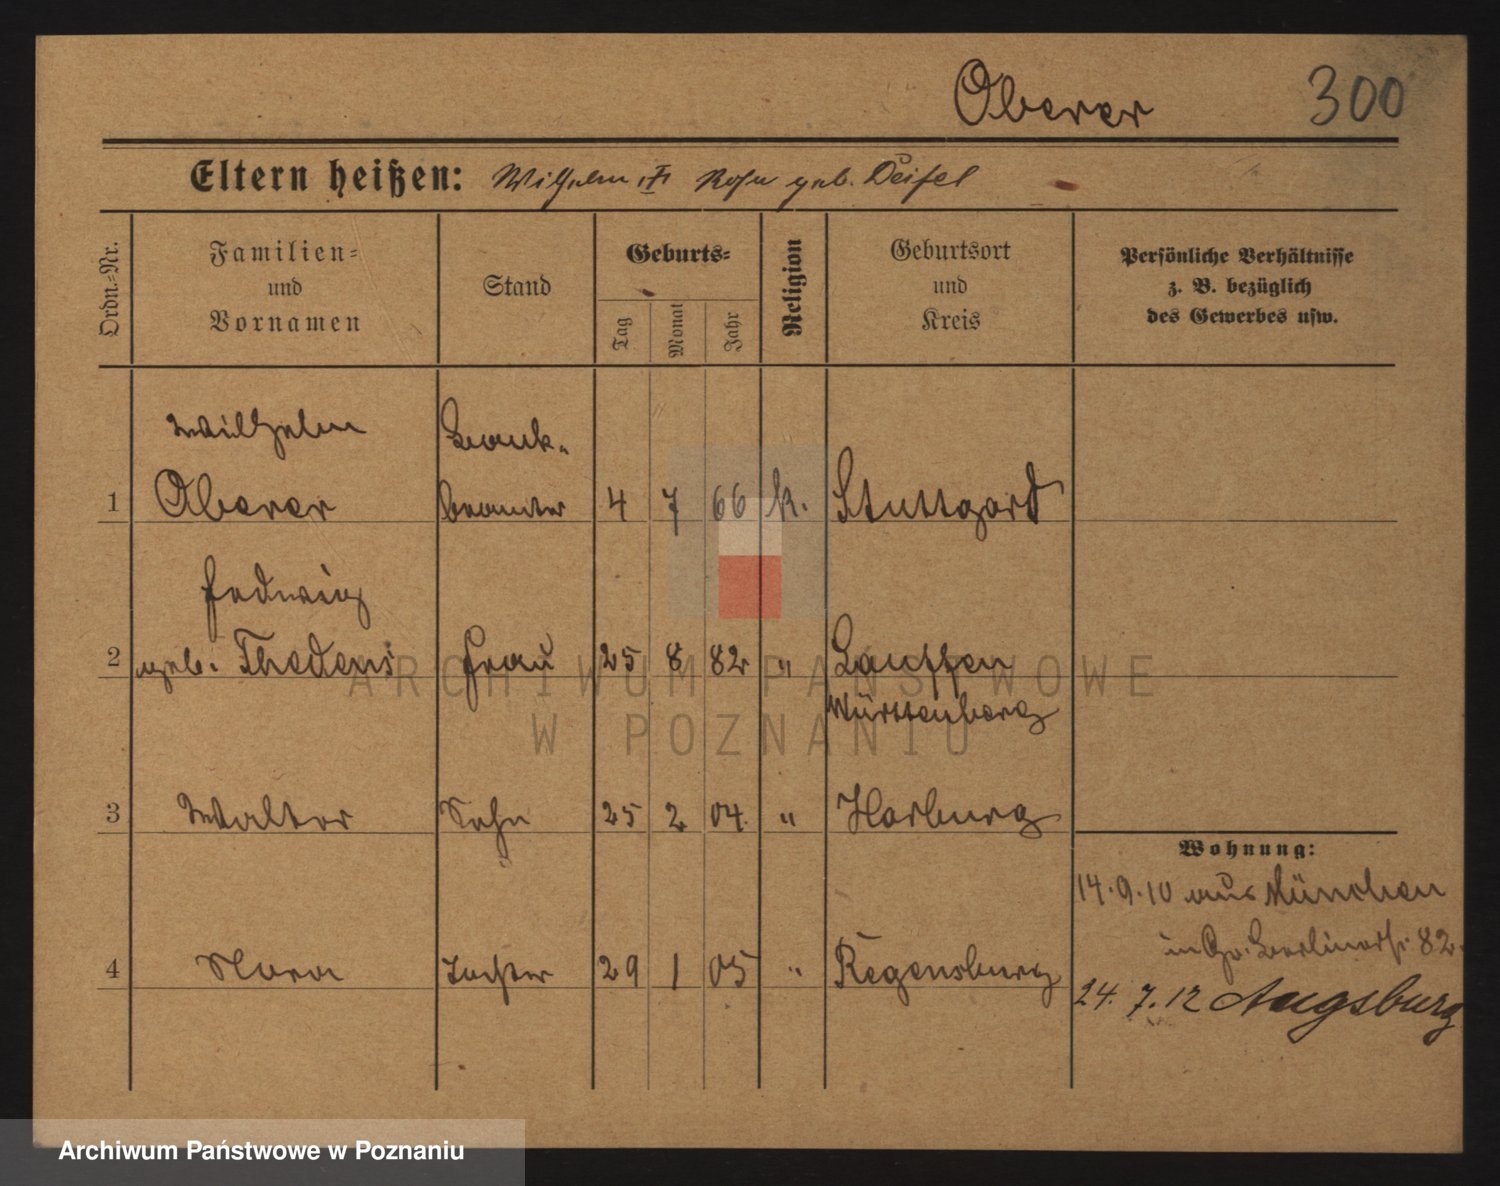 Oberer 300
Eltern heißen: Wilhelm u. Rosa geb. Deifel
Ordn.-Nr.
Familien-
und
Vornamen
Stand
Geburts-
Tag
Monat
Jahr
Religion
Geburtsort
und
Kreis
Persönliche Verhältnisse
z. B. bezüglich
des Gewerbes usw.
Wilhelm Bank-
1 Oberer beamter 4 7 66 k. Stuttgard
Hedwig
2 geb. Thedens Frau 25 8 82 " Lauffen
Württenberg
3 Walter Sohn 25 2 04. " Harburg
Wohnung:
14.9.10 aus München
in Berlinerstr. 82.
4 Nora Tochter 29 1 05 " Regensburg
24. 7. 12 Augsburg
ARCHIWUM PAŃSTWOWE
W POZNANIU
Archiwum Państwowe w Poznaniu